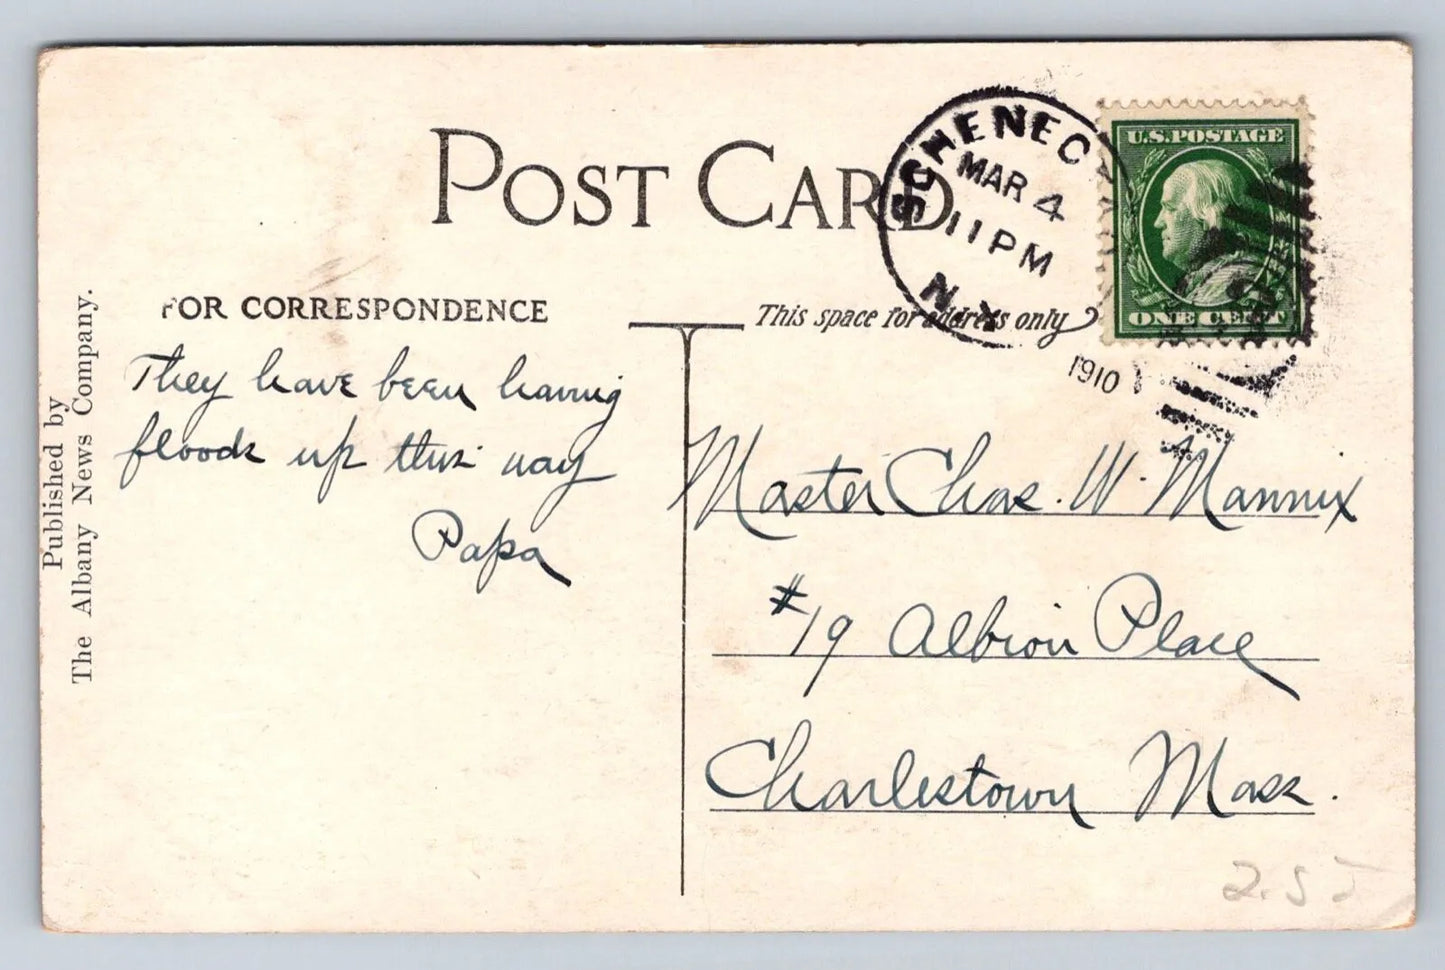 POST CARD
SCHENEC
MAR 4
11 PM
N.Y.
1910
U.S. POSTAGE
ONE CENT
4
FOR CORRESPONDENCE
This space for address only
Published by
The Albany News Company.
They have been having
floods up this way
Papa
Master Chas. W. Mannix
#19 Albion Place
Charlestown Mass.